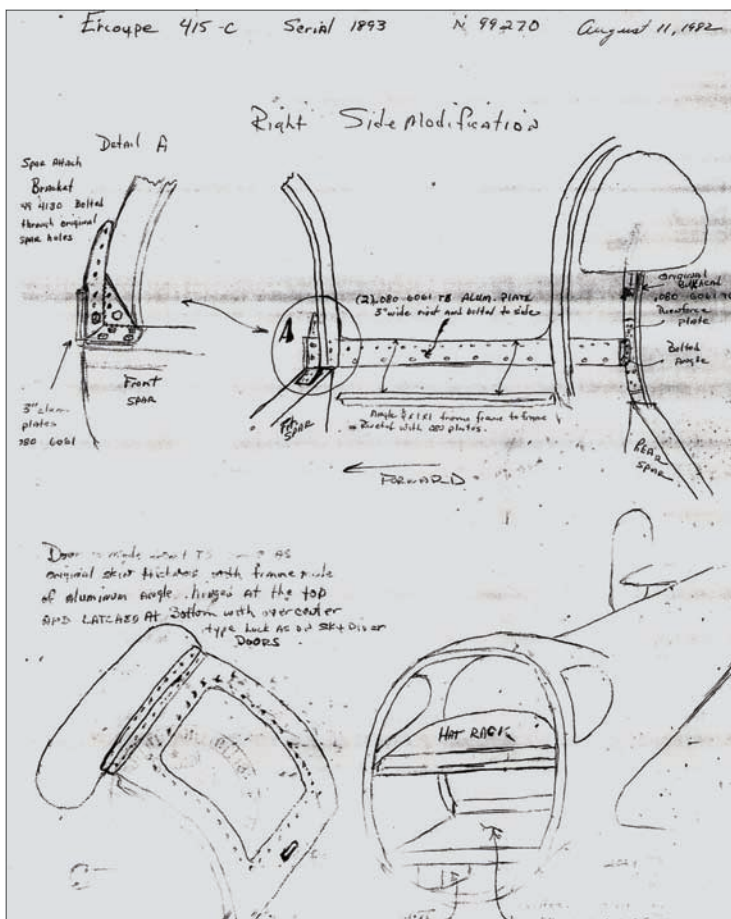 Ercoupe 415-C Serial 1893 N 99270 August 11, 1982
Right Side Modification
Detail A
Spar Attach
Bracket
4130 Bolted
through original
spar holes
Front
SPAR
3" alum
plates
080 6061
A
(2) .080 6061 T6 ALUM. PLATE
3" wide rivet and bolted to side
Angle 1/8 x 1 x 1 frame to frame
Riveted with 080 plates.
Frt
SPAR
FORWARD
original
Bulkhead
.080 6061 T6
Reinforce
plate
Bolted
Angle
REAR
SPAR
Door is made AS
original skin thickness with frame made
of Aluminum Angle. hinged at the top
AND LATCHED At Bottom with overcenter
type Lock As on Sky Diver
DOORS
HAT RACK